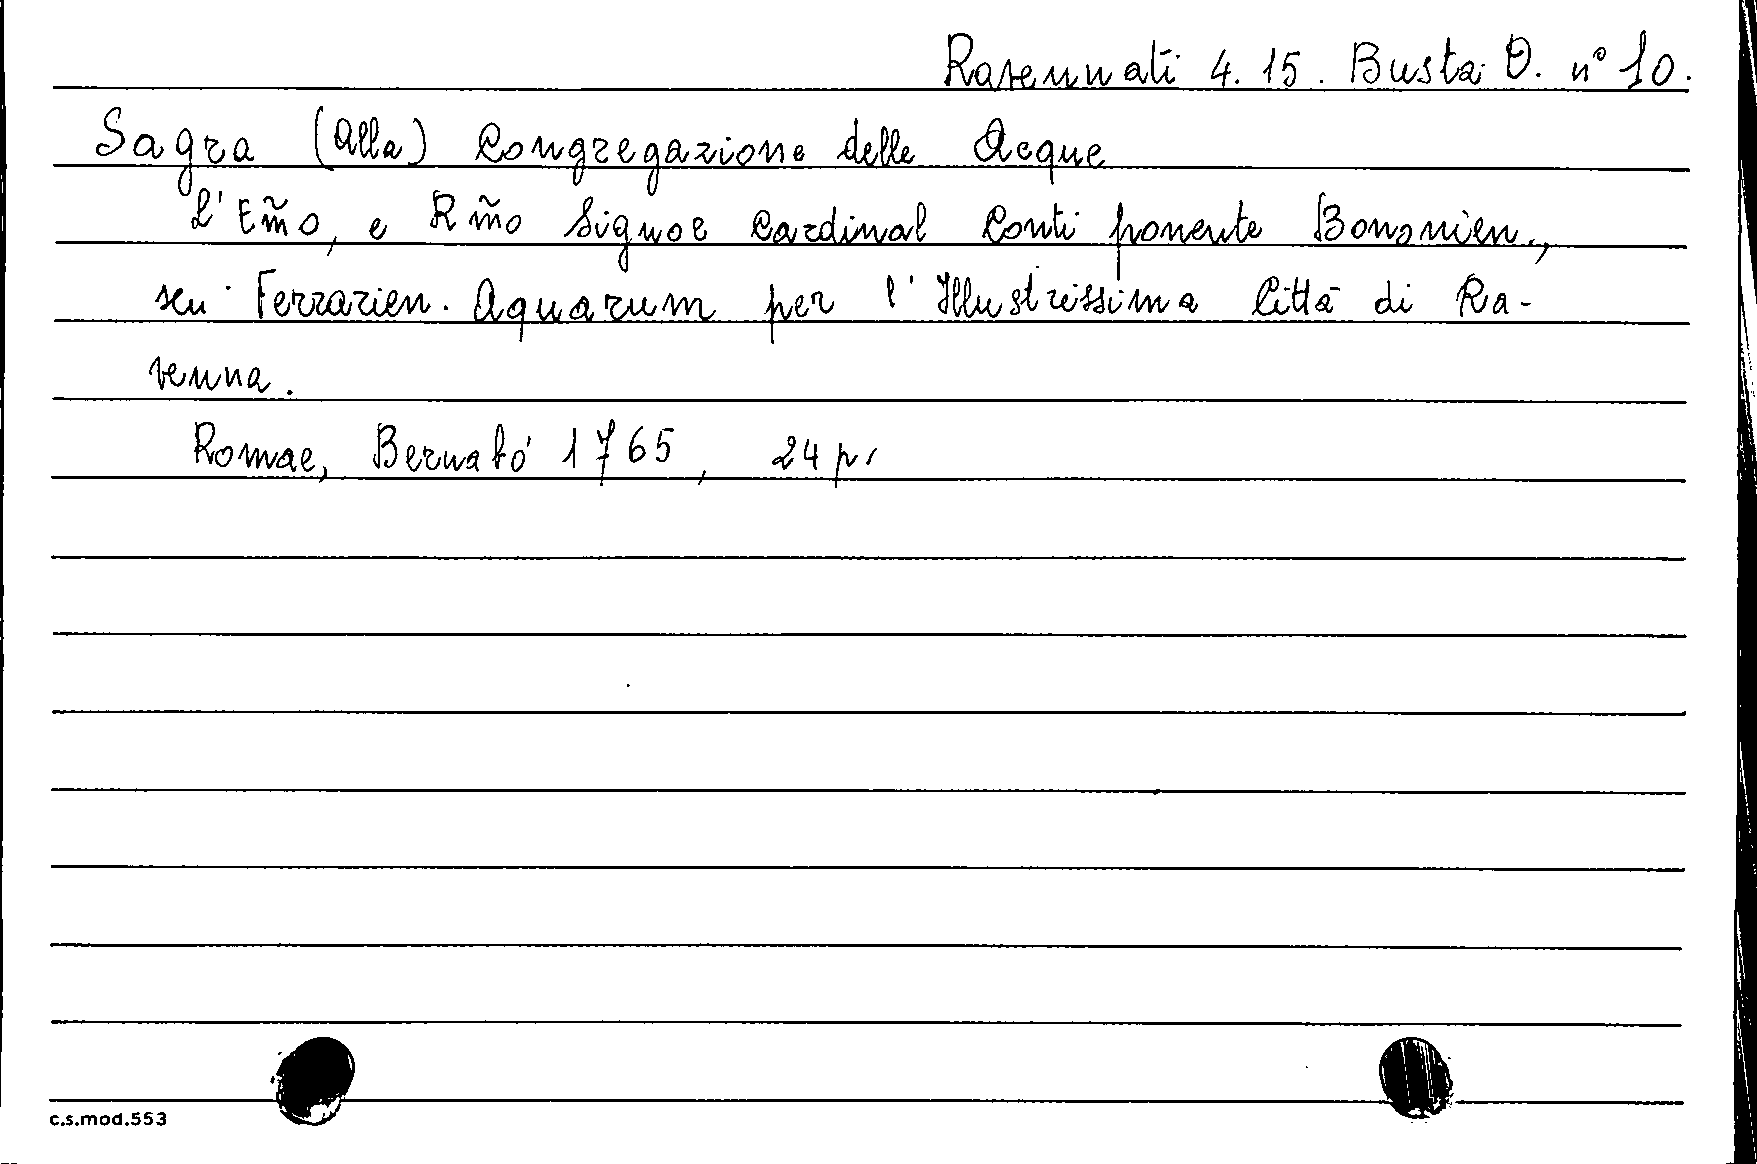 Ravennati 4.15. Busta O. n° 10.
Sagra (alla) Congregazione delle Acque
L'Em̃o, e Rm̃o Signor Cardinal Conti ponente Bononien.,
seu Ferrarien. Aquarum per l'Illustrissima Città di Ra-
venna.
Romae, Bernabò 1765, 24 p.
c.s.mod.553